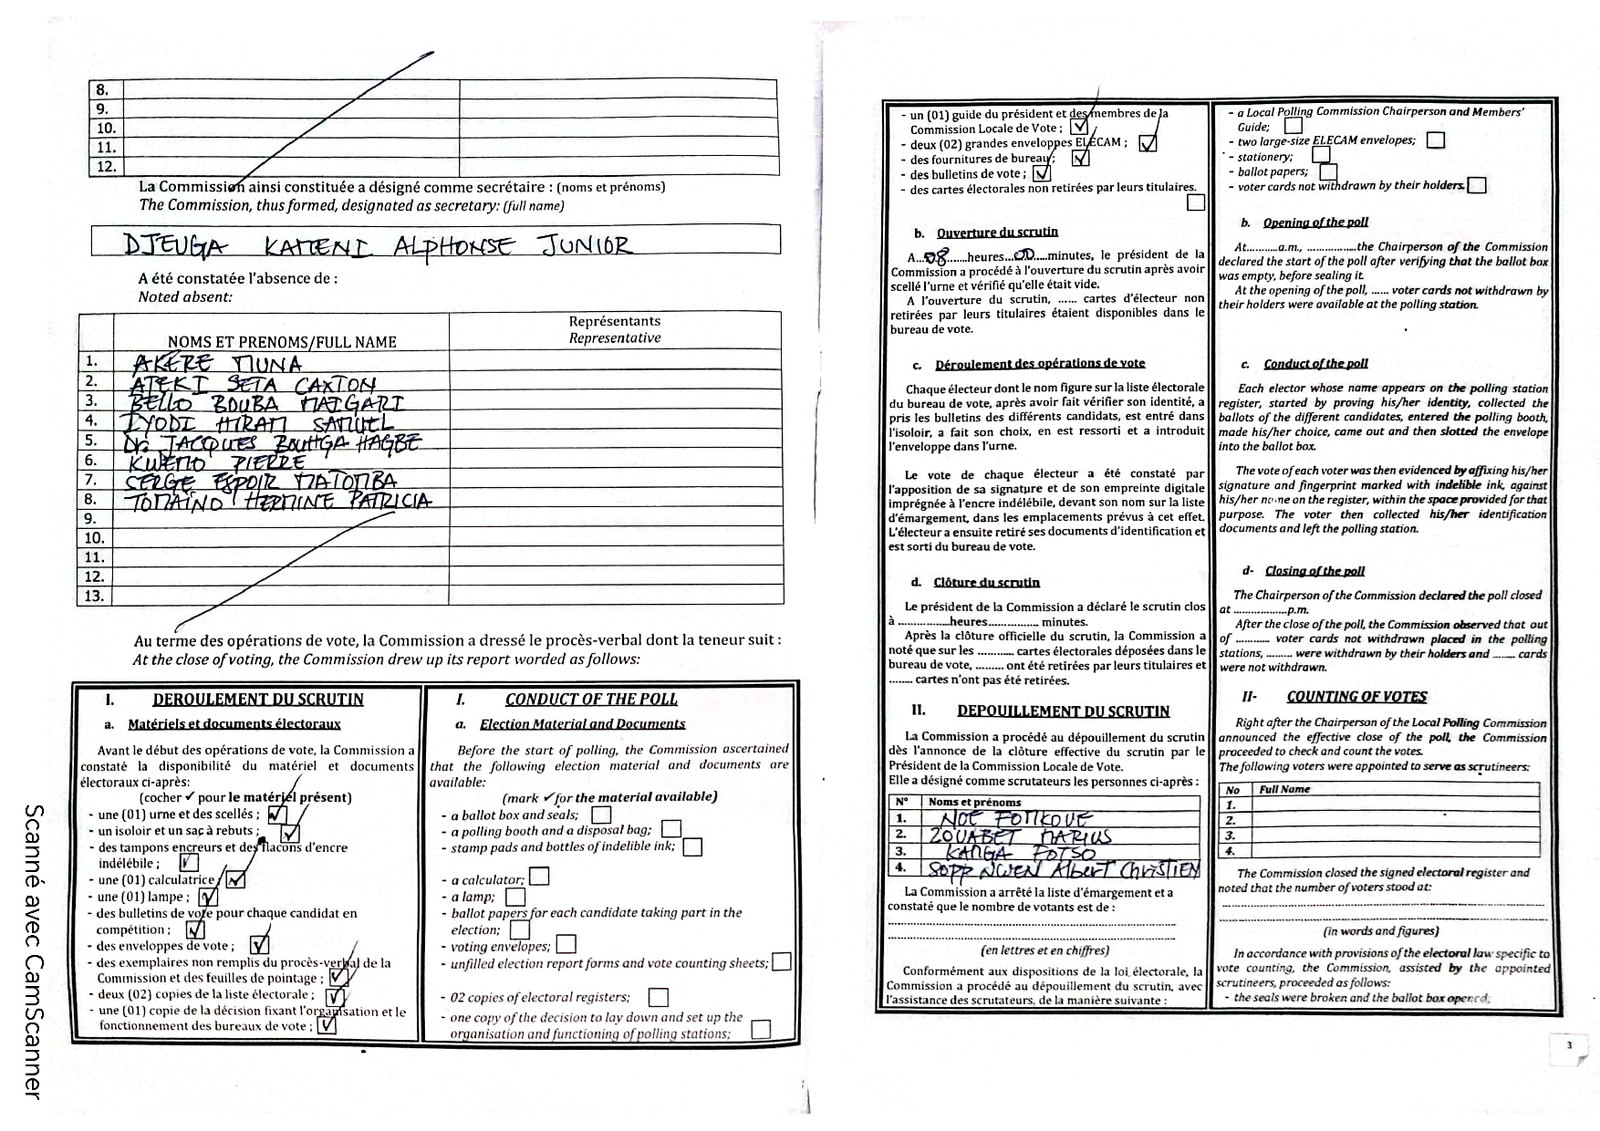 8.
9.
10.
11.
12.
La Commission ainsi constituée a désigné comme secrétaire : (noms et prénoms)
The Commission, thus formed, designated as secretary: (full name)
DJEUGA KAMENI ALPHONSE JUNIOR
A été constatée l'absence de :
Noted absent:
NOMS ET PRENOMS/FULL NAME
Représentants
Representative
1. AKERE MUNA
2. ATEKI SETA CAXTON
3. BELLO BOUBA MAIGARI
4. IYODI HIRAM SAMUEL
5. Dr. JACQUES BOUHGA HAGBE
6. KWEMO PIERRE
7. SERGE ESPOIR MATOMBA
8. TOMAÏNO HERMINE PATRICIA
9.
10.
11.
12.
13.
Au terme des opérations de vote, la Commission a dressé le procès-verbal dont la teneur suit :
At the close of voting, the Commission drew up its report worded as follows:
I. DEROULEMENT DU SCRUTIN
a. Matériels et documents électoraux
Avant le début des opérations de vote, la Commission a
constaté la disponibilité du matériel et documents
électoraux ci-après:
(cocher ✓ pour le matériel présent)
- une (01) urne et des scellés ; ✓
- un isoloir et un sac à rebuts ; ✓
- des tampons encreurs et des flacons d'encre
indélébile ; ✓
- une (01) calculatrice ✓
- une (01) lampe ; ✓
- des bulletins de vote pour chaque candidat en
compétition ; ✓
- des enveloppes de vote ; ✓
- des exemplaires non remplis du procès-verbal de la
Commission et des feuilles de pointage ; ✓
- deux (02) copies de la liste électorale ; ✓
- une (01) copie de la décision fixant l'organisation et le
fonctionnement des bureaux de vote ; ✓
I. CONDUCT OF THE POLL
a. Election Material and Documents
Before the start of polling, the Commission ascertained
that the following election material and documents are
available:
(mark ✓ for the material available)
- a ballot box and seals;
- a polling booth and a disposal bag;
- stamp pads and bottles of indelible ink;
- a calculator;
- a lamp;
- ballot papers for each candidate taking part in the
election;
- voting envelopes;
- unfilled election report forms and vote counting sheets;
- 02 copies of electoral registers;
- one copy of the decision to lay down and set up the
organisation and functioning of polling stations;
Scanné avec CamScanner
- un (01) guide du président et des membres de la
Commission Locale de Vote ; ✓
- deux (02) grandes enveloppes ELECAM ; ✓
- des fournitures de bureau ; ✓
- des bulletins de vote ; ✓
- des cartes électorales non retirées par leurs titulaires.
b. Ouverture du scrutin
A...08......heures...00....minutes, le président de la
Commission a procédé à l'ouverture du scrutin après avoir
scellé l'urne et vérifié qu'elle était vide.
A l'ouverture du scrutin, ...... cartes d'électeur non
retirées par leurs titulaires étaient disponibles dans le
bureau de vote.
c. Déroulement des opérations de vote
Chaque électeur dont le nom figure sur la liste électorale
du bureau de vote, après avoir fait vérifier son identité, a
pris les bulletins des différents candidats, est entré dans
l'isoloir, a fait son choix, en est ressorti et a introduit
l'enveloppe dans l'urne.
Le vote de chaque électeur a été constaté par
l'apposition de sa signature et de son empreinte digitale
imprégnée à l'encre indélébile, devant son nom sur la liste
d'émargement, dans les emplacements prévus à cet effet.
L'électeur a ensuite retiré ses documents d'identification et
est sorti du bureau de vote.
d. Clôture du scrutin
Le président de la Commission a déclaré le scrutin clos
à ................heures................ minutes.
Après la clôture officielle du scrutin, la Commission a
noté que sur les ........... cartes électorales déposées dans le
bureau de vote, ......... ont été retirées par leurs titulaires et
........ cartes n'ont pas été retirées.
II. DEPOUILLEMENT DU SCRUTIN
La Commission a procédé au dépouillement du scrutin
dès l'annonce de la clôture effective du scrutin par le
Président de la Commission Locale de Vote.
Elle a désigné comme scrutateurs les personnes ci-après :
N° Noms et prénoms
1. NOE FOMKOUE
2. ZOUABET MARIUS
3. KAMGA FOTSO
4. SOPP NWEN Albert Christien
La Commission a arrêté la liste d'émargement et a
constaté que le nombre de votants est de :
(en lettres et en chiffres)
Conformément aux dispositions de la loi électorale, la
Commission a procédé au dépouillement du scrutin, avec
l'assistance des scrutateurs, de la manière suivante :
- a Local Polling Commission Chairperson and Members'
Guide;
- two large-size ELECAM envelopes;
- stationery;
- ballot papers;
- voter cards not withdrawn by their holders.
b. Opening of the poll
At..........a.m., .................the Chairperson of the Commission
declared the start of the poll after verifying that the ballot box
was empty, before sealing it.
At the opening of the poll, ...... voter cards not withdrawn by
their holders were available at the polling station.
c. Conduct of the poll
Each elector whose name appears on the polling station
register, started by proving his/her identity, collected the
ballots of the different candidates, entered the polling booth,
made his/her choice, came out and then slotted the envelope
into the ballot box.
The vote of each voter was then evidenced by affixing his/her
signature and fingerprint marked with indelible ink, against
his/her name on the register, within the space provided for that
purpose. The voter then collected his/her identification
documents and left the polling station.
d- Closing of the poll
The Chairperson of the Commission declared the poll closed
at ..................p.m.
After the close of the poll, the Commission observed that out
of ........... voter cards not withdrawn placed in the polling
stations, ......... were withdrawn by their holders and ........ cards
were not withdrawn.
II- COUNTING OF VOTES
Right after the Chairperson of the Local Polling Commission
announced the effective close of the poll, the Commission
proceeded to check and count the votes.
The following voters were appointed to serve as scrutineers:
No Full Name
1.
2.
3.
4.
The Commission closed the signed electoral register and
noted that the number of voters stood at:
(in words and figures)
In accordance with provisions of the electoral law specific to
vote counting, the Commission, assisted by the appointed
scrutineers, proceeded as follows:
- the seals were broken and the ballot box opened;
3